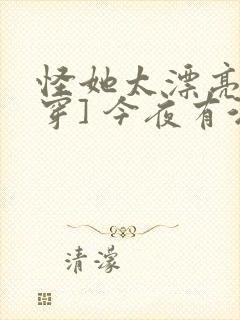 怪她太漂亮
穿] 今夜有
清濛